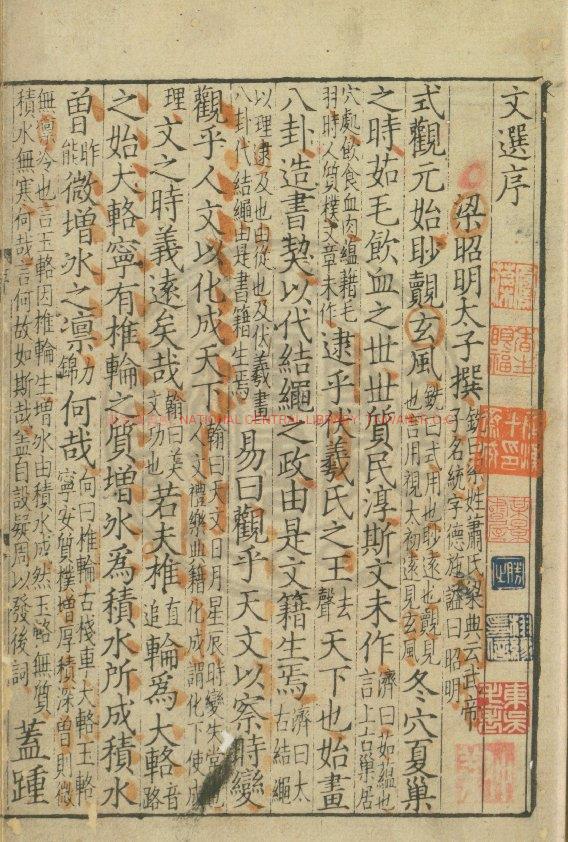 文選序
梁昭明太子撰 銑曰系姓蕭氏梁典云武帝子名統字德施諡曰昭明
式觀元始眇覿玄風 銑曰式用也眇遠也覿見也言用視太初遠見玄風 冬穴夏巢
之時茹毛飲血之世世質民淳斯文未作 濟曰茹蘊也言上古巢居
穴處飲食血肉蘊藉毛羽時人質樸文章未作 逮乎伏羲氏之王去聲天下也始畫
八卦造書契以代結繩之政由是文籍生焉 濟曰太古結繩
以理逮及也由從也及伏羲畫八卦代結繩由是書籍生焉 易曰觀乎天文以察時變
觀乎人文以化成天下 翰曰天文日月星辰時變失常 人文禮樂典籍化成謂化下使成
理 文之時義遠矣哉 翰曰美文功也 若夫椎直追輪為大輅音路
之始大輅寧有椎輪之質增冰為積水所成積水
曾昨能微增冰之凜力錦何哉 向曰椎輪古棧車大輅玉輅寧安質樸增厚積深曾則微
無凜冷也言玉輅因椎輪生增冰由積水成然玉輅無質
積水無寒何哉言何故如斯哉蓋自設疑周以發後詞 蓋踵
NATIONAL CENTRAL LIBRARY, TAIWAN R.O.C